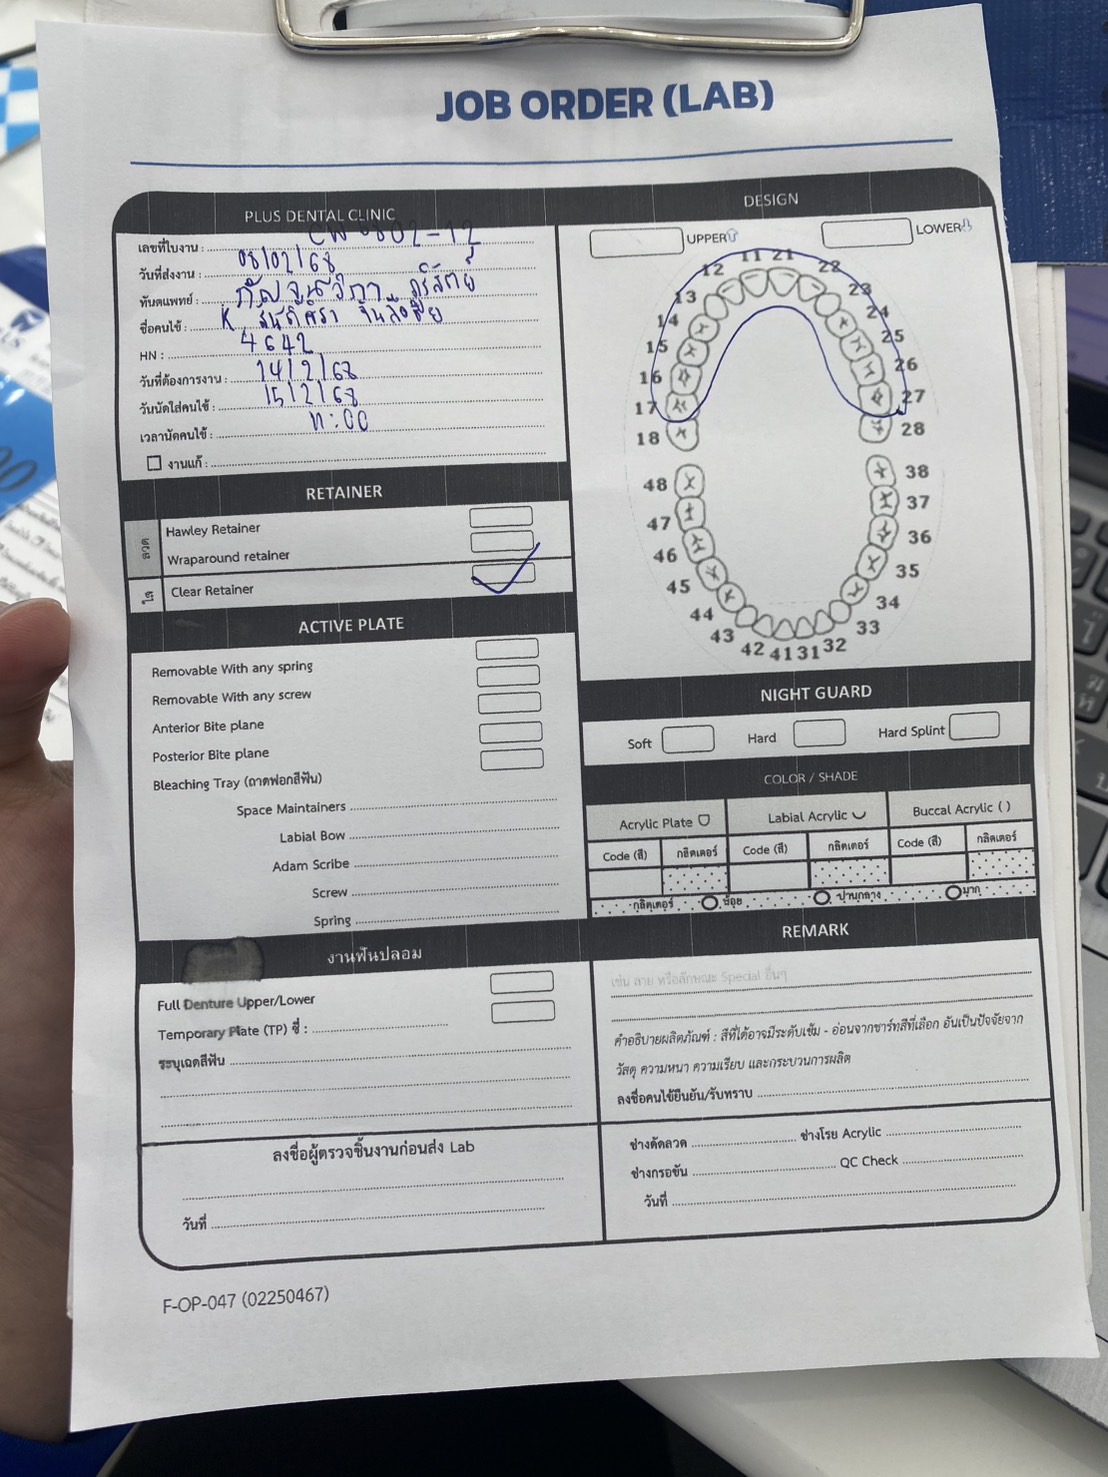 JOB ORDER (LAB)
PLUS DENTAL CLINIC
เลขที่ใบงาน : CW 0802-12
วันที่ส่งงาน : 08/02/68
ทันตแพทย์ : กัญจน์วิภา
ชื่อคนไข้ : K
HN : 4642
วันที่ต้องการงาน : 14/2/68
วันนัดใส่คนไข้ : 15/2/68
เวลานัดคนไข้ : :00
งานแก้ :
RETAINER
ลวด
Hawley Retainer
Wraparound retainer
ใส
Clear Retainer
ACTIVE PLATE
Removable With any spring
Removable With any screw
Anterior Bite plane
Posterior Bite plane
Bleaching Tray (ถาดฟอกสีฟัน)
Space Maintainers
Labial Bow
Adam Scribe
Screw
Spring
งานฟันปลอม
Full Denture Upper/Lower
Temporary Plate (TP) ซี่ :
ระบุเฉดสีฟัน
ลงชื่อผู้ตรวจชิ้นงานก่อนส่ง Lab
วันที่
DESIGN
UPPER
LOWER
11 21
12 22
13 23
14 24
15 25
16 26
17 27
18 28
48 38
47 37
46 36
45 35
44 34
43 33
42 41 31 32
NIGHT GUARD
Soft
Hard
Hard Splint
COLOR / SHADE
Acrylic Plate
Labial Acrylic
Buccal Acrylic ( )
Code (สี) กลิตเตอร์ Code (สี) กลิตเตอร์ Code (สี) กลิตเตอร์
กลิตเตอร์ น้อย ปานกลาง มาก
REMARK
เช่น ลาย หรือลักษณะ Special อื่นๆ
คำอธิบายผลิตภัณฑ์ : สีที่ได้อาจมีระดับเข้ม - อ่อนจากชาร์ทสีที่เลือก อันเป็นปัจจัยจาก
วัสดุ ความหนา ความเรียบ และกระบวนการผลิต
ลงชื่อคนไข้ยืนยัน/รับทราบ
ช่างดัดลวด ช่างโรย Acrylic
ช่างกรอขัน QC Check
วันที่
F-OP-047 (02250467)